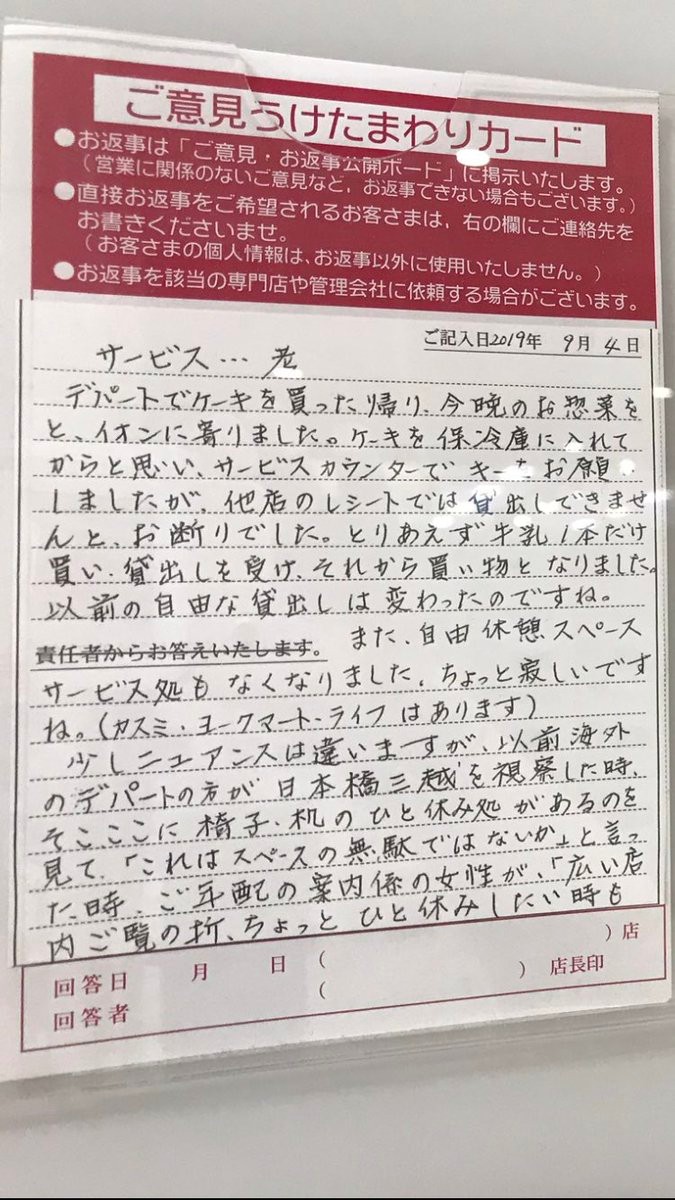 ご意見うけたまわりカード
●お返事は「ご意見・お返事公開ボード」に掲示いたします。
（営業に関係のないご意見など，お返事できない場合もございます。）
●直接お返事をご希望されるお客さまは，右の欄にご連絡先を
お書きくださいませ。
（お客さまの個人情報は、お返事以外に使用いたしません。）
●お返事を該当の専門店や管理会社に依頼する場合がございます。
ご記入日2019年 9月4日
サービス…
デパートでケーキを買った帰り、今晩のお惣菜を
と、イオンに寄りました。ケーキを保冷庫に入れて
からと思い、サービスカウンターで お願い
しましたが、他店のレシートでは貸出しできませ
んと、お断りでした。とりあえず牛乳1本だけ
買い、貸出しを受け、それから買い物となりました。
以前の自由な貸出しは変わったのですね。
責任者からお答えいたします。 また、自由休憩スペース
サービス処もなくなりました。ちょっと寂しいです
ね。(カスミ・ヨークマート・ライフはあります)
少しニュアンスは違いますが、以前海外
のデパートの方が日本橋三越を視察した時、
そこここに椅子・机のひと休み処があるのを
見て、「これはスペースの無駄ではないか」と言っ
た時、ご年配の案内係の女性が、「広い店
内ご覧の折、ちょっとひと休みしたい時も
回答日 月 日 ( )店
回答者 ( ) 店長印